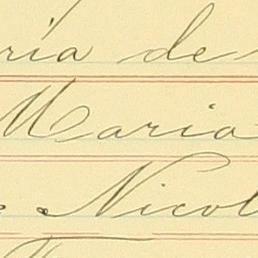 ría de
Maria
Nicol